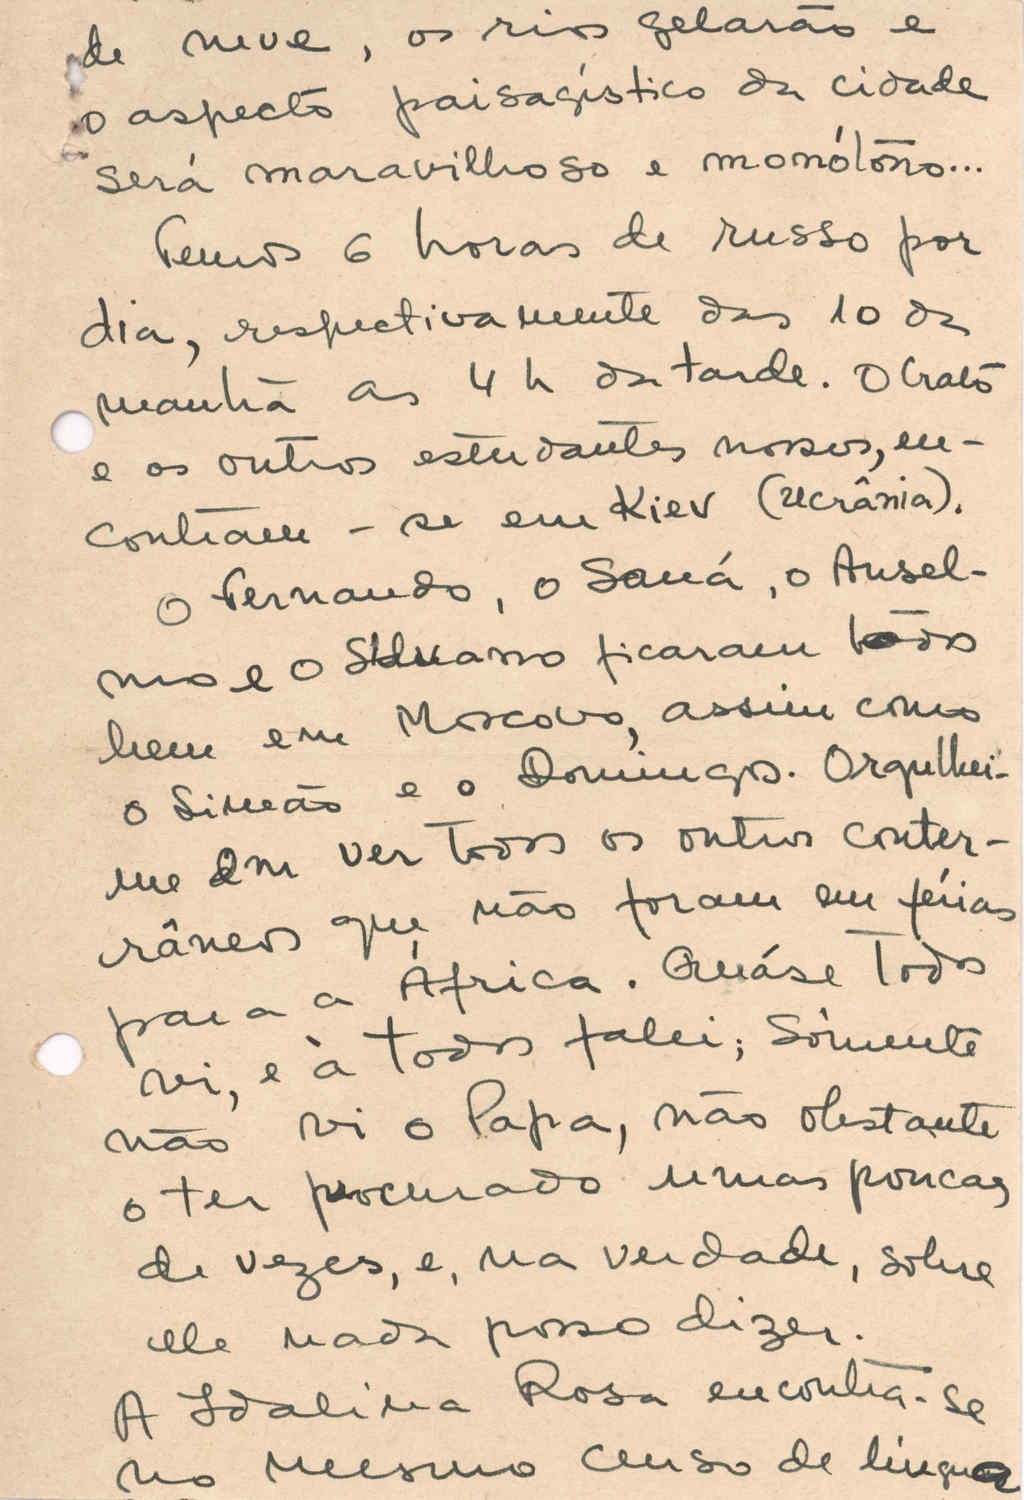 de neve, os rios gelarão e
o aspecto paisagístico da cidade
será maravilhoso e monótono...
Temos 6 horas de russo por
dia, respectivamente das 10 da
manhã as 4 h da tarde. O Crató
e os outros estudantes nossos, en-
contram-se em Kiev (Ucrânia).
O Fernando, o Saná, o Ansel-
mo e o ficaram todos
bem em Moscovo, assim como
o Simeão e o Domingos. Orgulhei-
me em ver todos os outros conter-
râneos que não foram em férias
para a África. Quáse todos
vi, e à todos falei; Sòmente
não vi o Papa, não obstante
o ter procurado umas poucas
de vezes, e, na verdade, sobre
ele nada posso dizer.
A Idalina Rosa encontra-se
no mesmo curso de língua